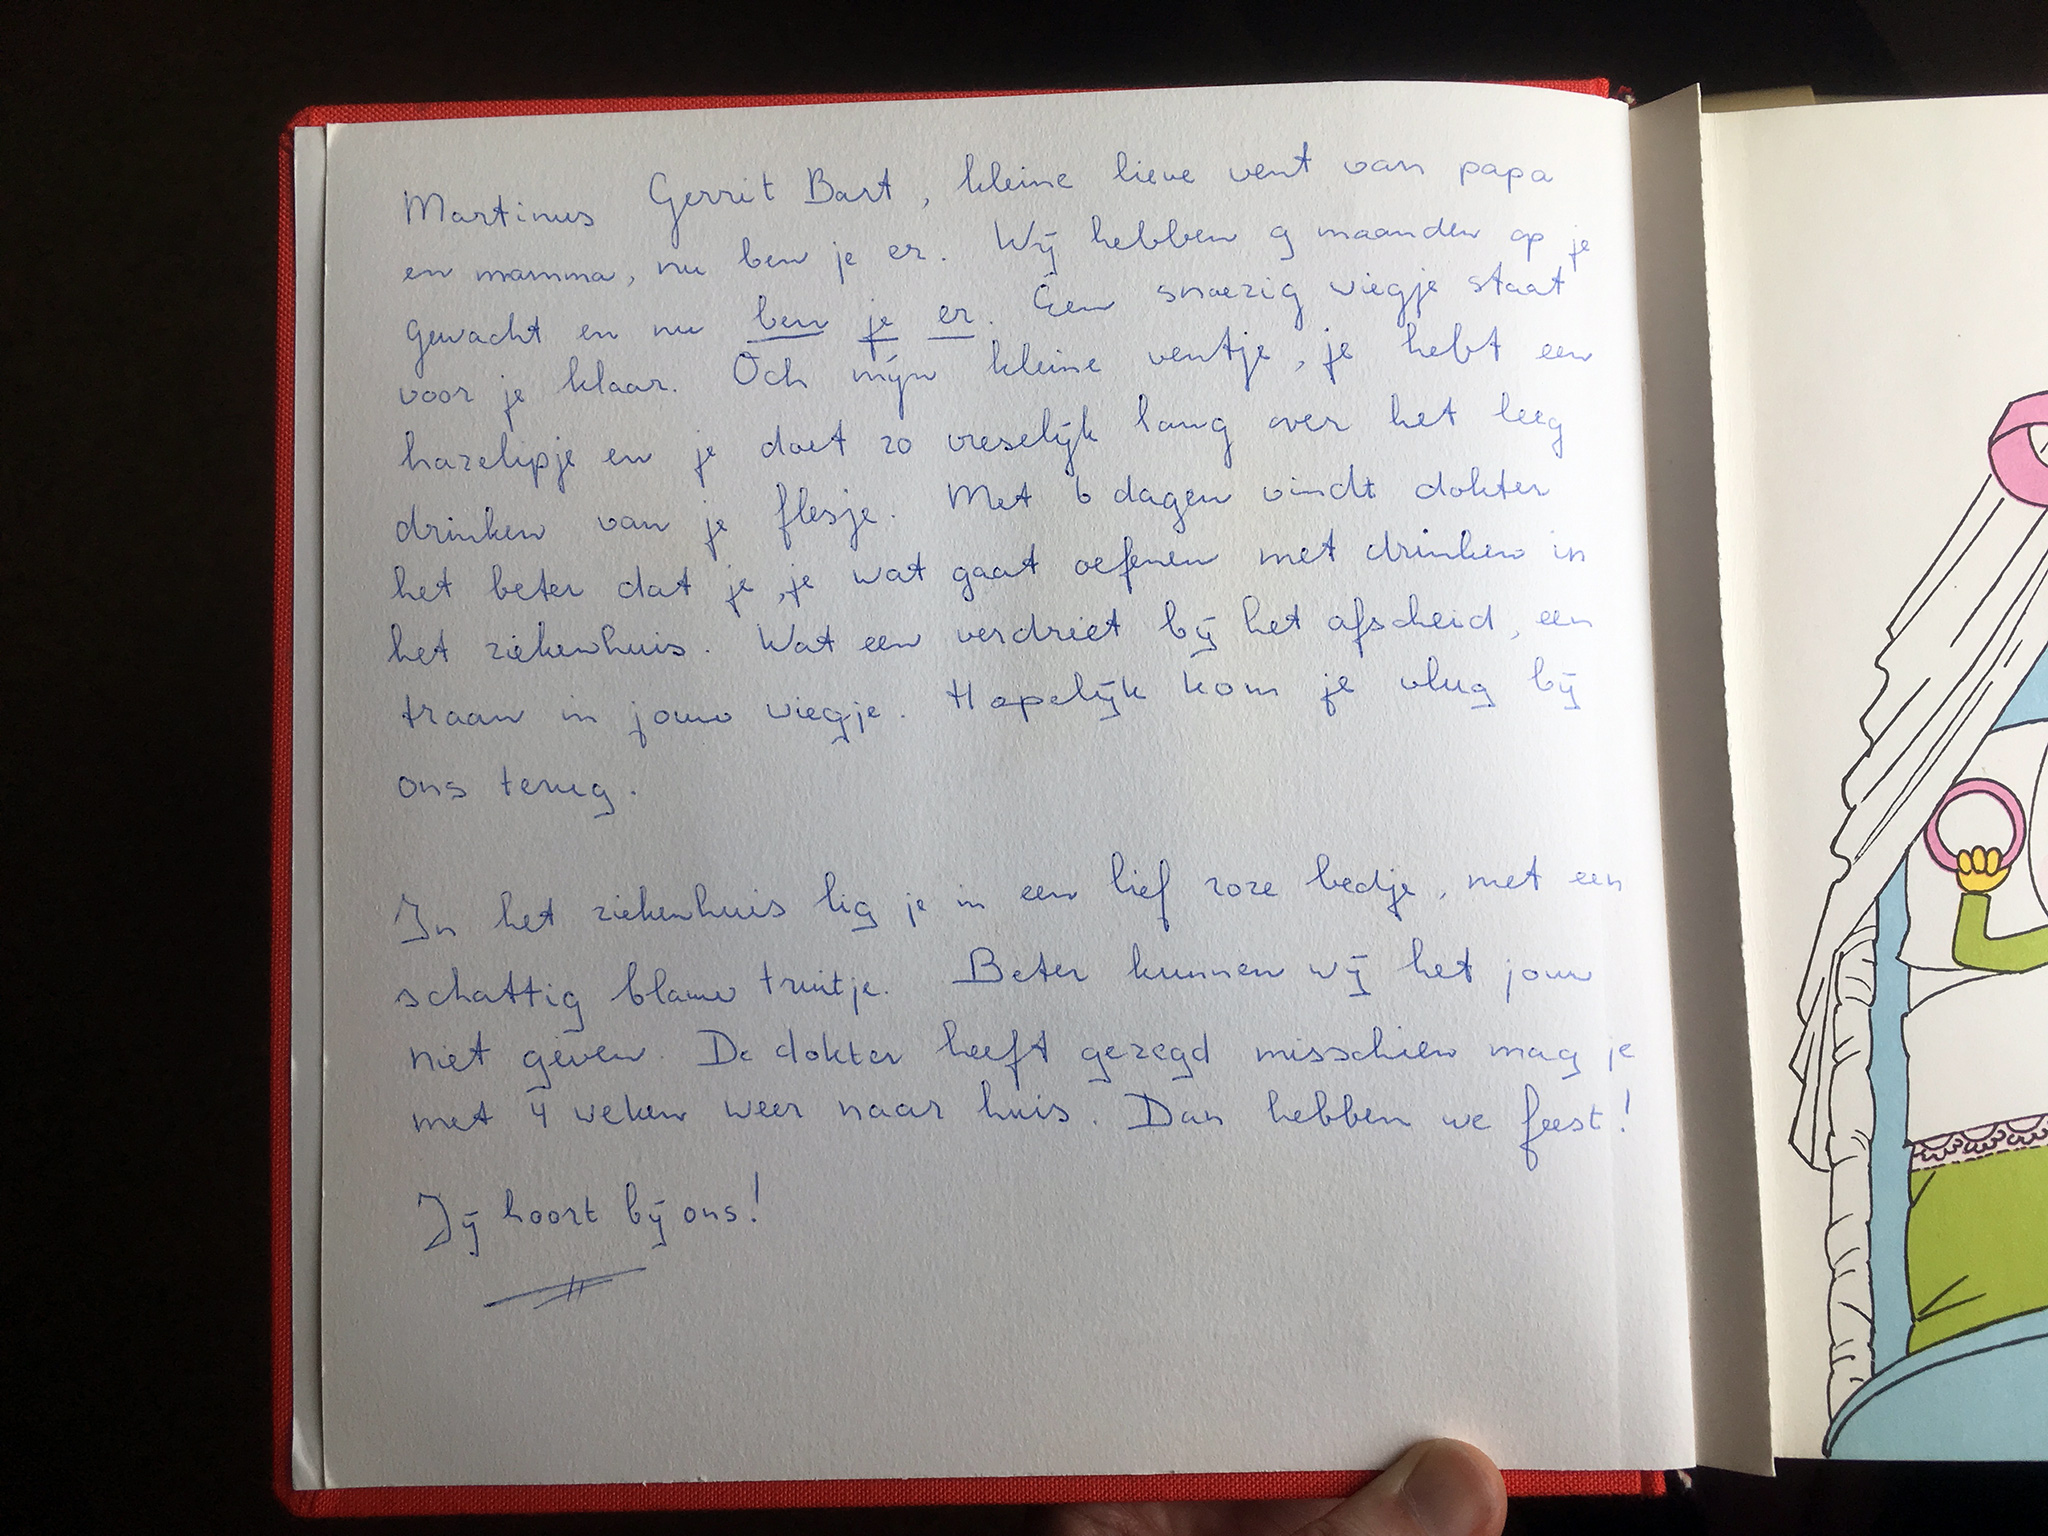 Martinus Gerrit Bart, kleine lieve vent van papa
en mamma, nu ben je er. Wij hebben 9 maanden op je
gewacht en nu ben je er. Een snoezig wiegje staat
voor je klaar. Och mijn kleine ventje, je hebt een
hazelipje en je doet zo vreselijk lang over het leeg
drinken van je flesje. Met 6 dagen vindt dokter
het beter dat je, je wat gaat oefenen met drinken in
het ziekenhuis. Wat een verdriet bij het afscheid, een
traan in jouw wiegje. Hopelijk kom je vlug bij
ons terug.
In het ziekenhuis lig je in een lief roze bedje, met een
schattig blauw truitje. Beter kunnen wij het jouw
niet geven. De dokter heeft gezegd misschien mag je
met 4 weken weer naar huis. Dan hebben we feest!
Jij hoort bij ons!